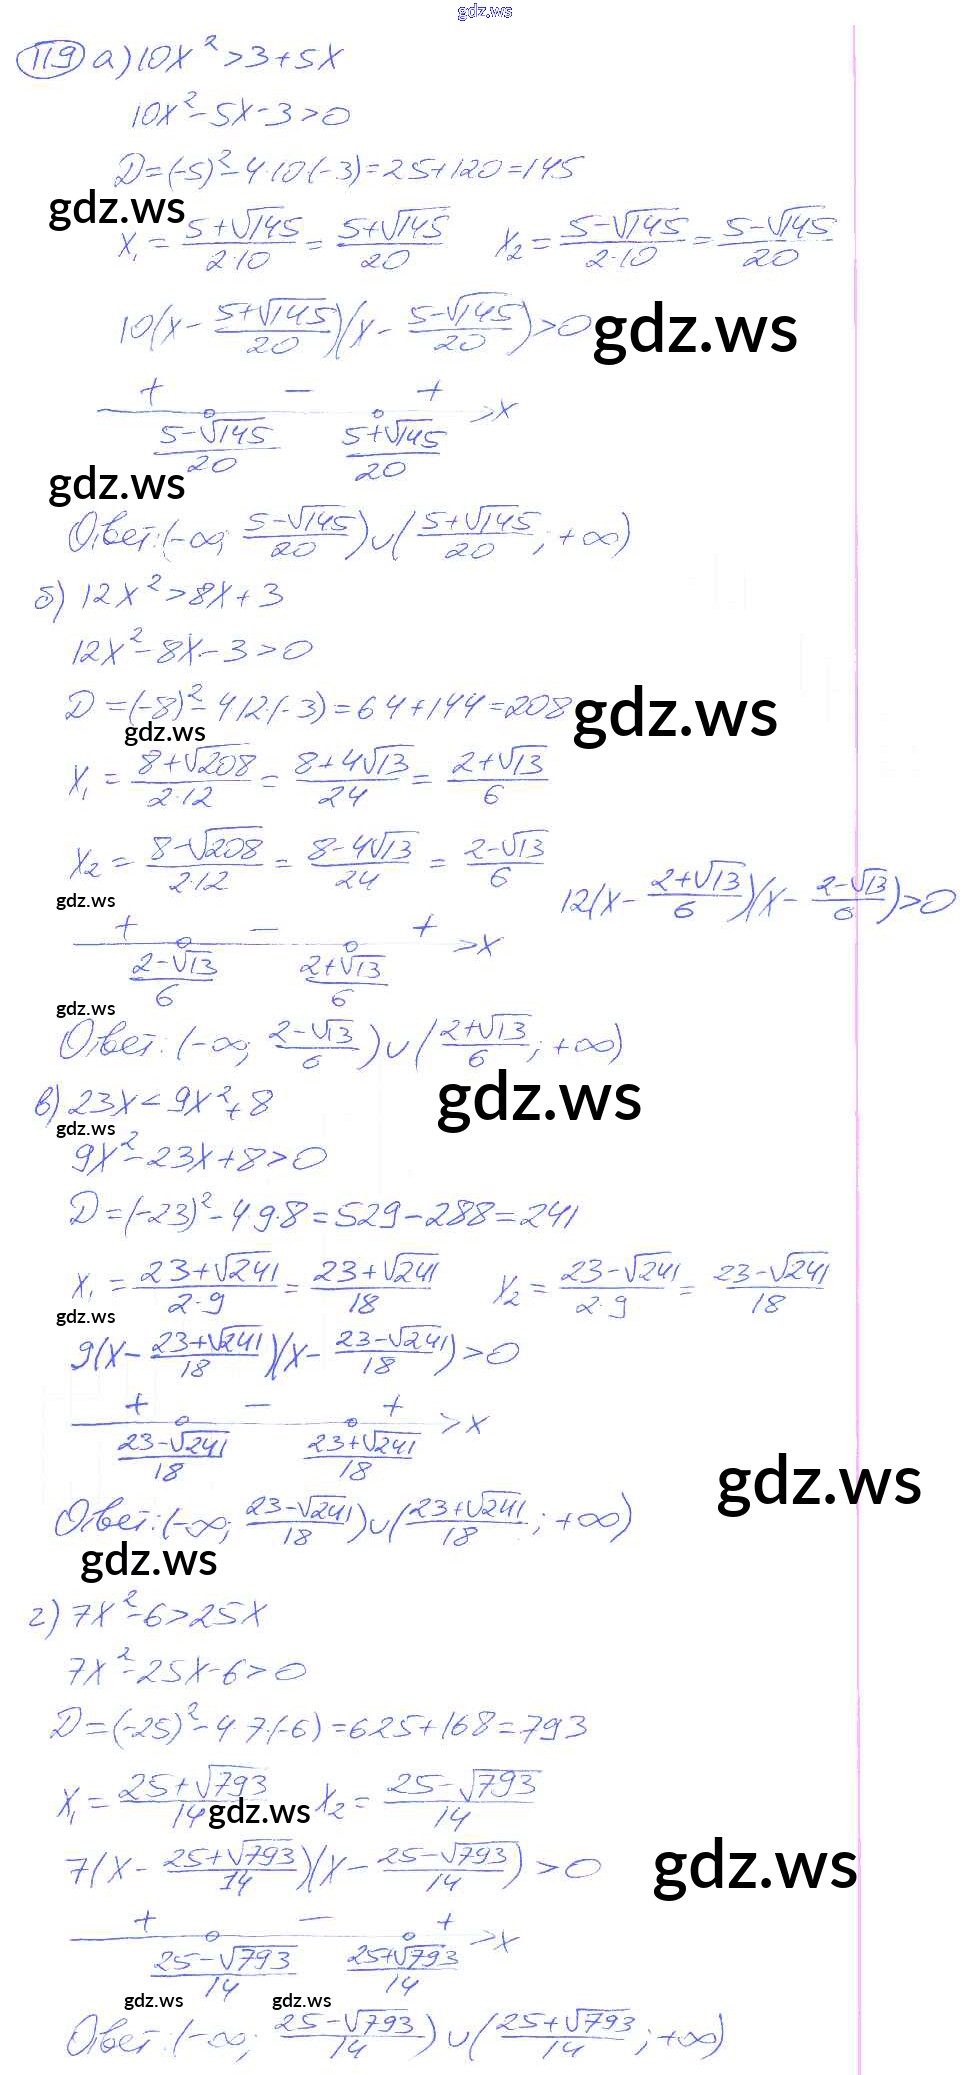 gdz.ws
119 а) 10x² > 3 + 5x
10x² - 5x - 3 > 0
D = (-5)² - 4·10(-3) = 25 + 120 = 145
gdz.ws
x₁ = (5+√145)/(2·10) = (5+√145)/20 x₂ = (5-√145)/(2·10) = (5-√145)/20
10(x - (5+√145)/20)(x - (5-√145)/20) > 0 gdz.ws
+ - + > x
(5-√145)/20 (5+√145)/20
gdz.ws
Ответ: (-∞; (5-√145)/20) ∪ ((5+√145)/20; +∞)
б) 12x² > 8x + 3
12x² - 8x - 3 > 0
D = (-8)² - 4·12·(-3) = 64 + 144 = 208 gdz.ws
gdz.ws
x₁ = (8+√208)/(2·12) = (8+4√13)/24 = (2+√13)/6
x₂ = (8-√208)/(2·12) = (8-4√13)/24 = (2-√13)/6
gdz.ws
12(x - (2+√13)/6)(x - (2-√13)/6) > 0
+ - + > x
(2-√13)/6 (2+√13)/6
gdz.ws
Ответ: (-∞; (2-√13)/6) ∪ ((2+√13)/6; +∞)
в) 23x < 9x² + 8 gdz.ws
gdz.ws
9x² - 23x + 8 > 0
D = (-23)² - 4·9·8 = 529 - 288 = 241
x₁ = (23+√241)/(2·9) = (23+√241)/18 x₂ = (23-√241)/(2·9) = (23-√241)/18
gdz.ws
9(x - (23+√241)/18)(x - (23-√241)/18) > 0
+ - + > x
(23-√241)/18 (23+√241)/18
gdz.ws
Ответ: (-∞; (23-√241)/18) ∪ ((23+√241)/18; +∞)
gdz.ws
г) 7x² - 6 > 25x
7x² - 25x - 6 > 0
D = (-25)² - 4·7·(-6) = 625 + 168 = 793
x₁ = (25+√793)/14 x₂ = (25-√793)/14
gdz.ws
7(x - (25+√793)/14)(x - (25-√793)/14) > 0 gdz.ws
+ - + > x
(25-√793)/14 (25+√793)/14
gdz.ws gdz.ws
Ответ: (-∞; (25-√793)/14) ∪ ((25+√793)/14; +∞)